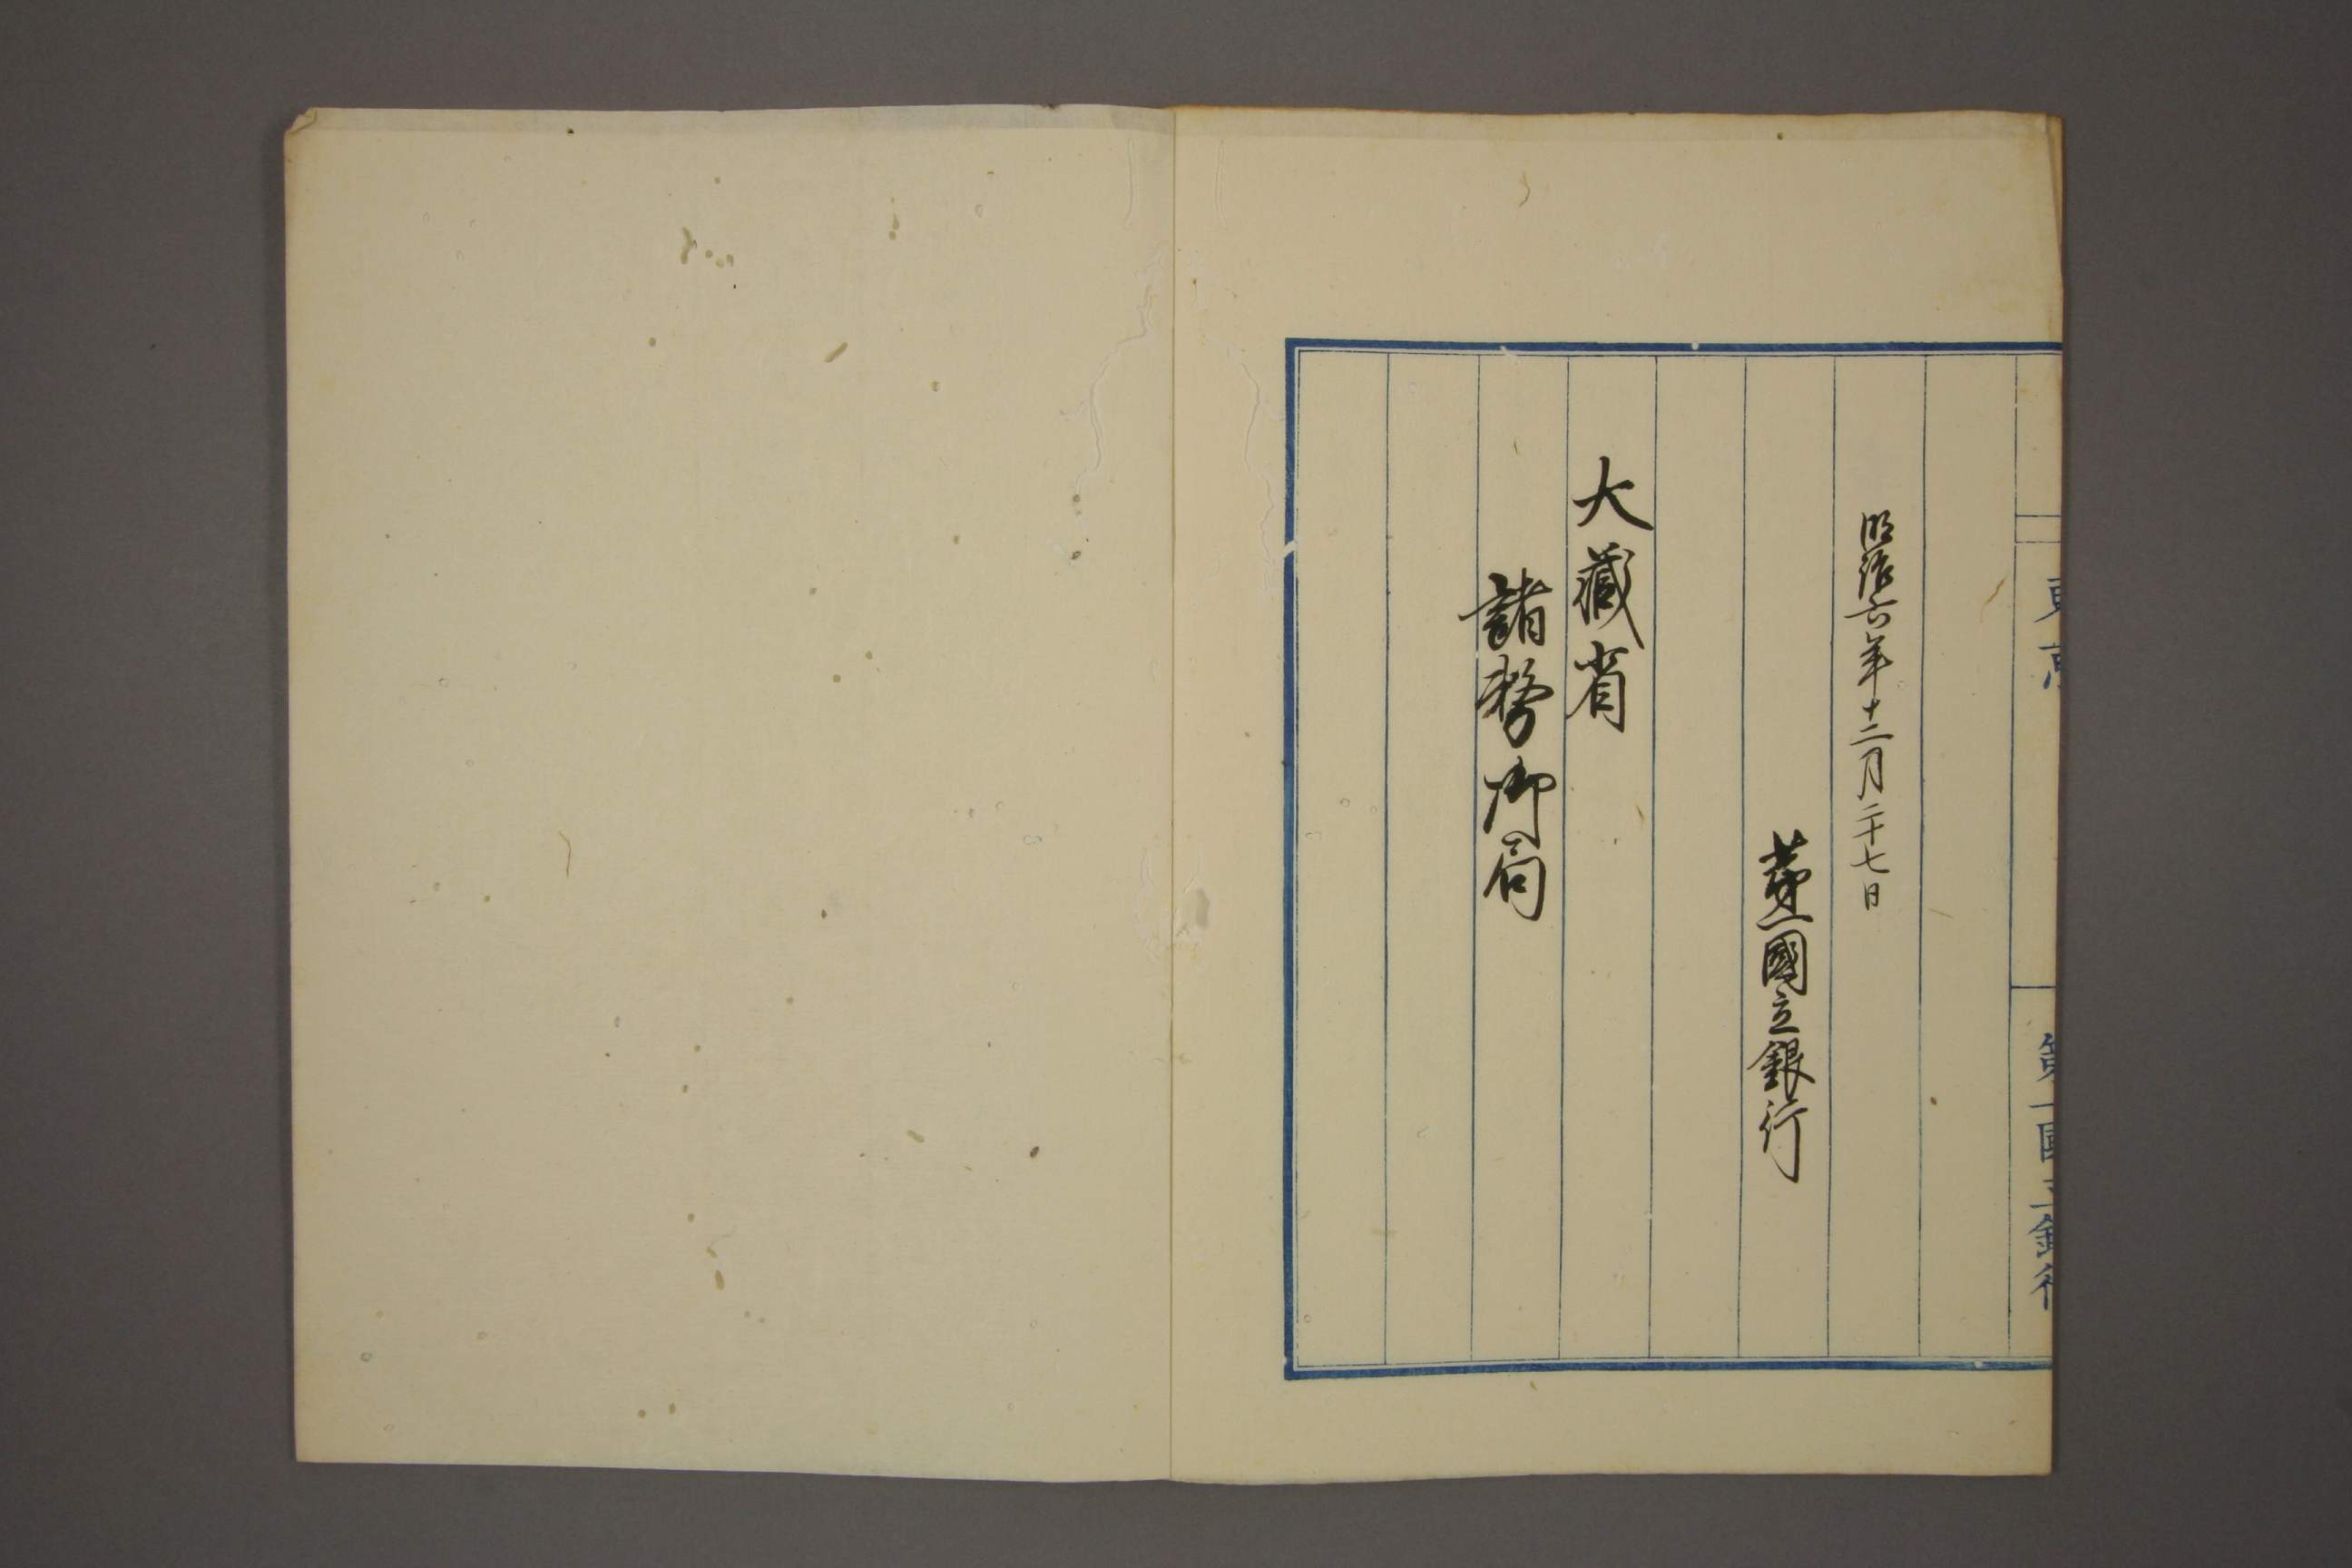 東京
第一國立銀行
明治六年十二月二十七日
第一國立銀行
大藏省
諸務御局